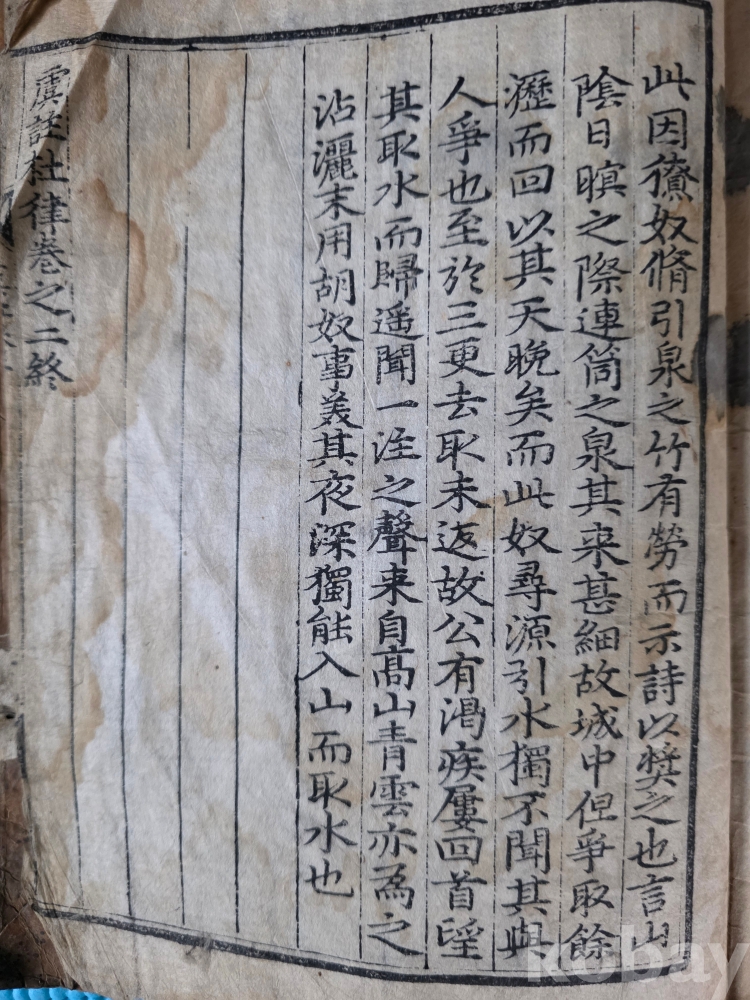 此因獠奴脩引泉之竹有勞而示詩以奬之也言山
陰日暝之際連筒之泉其来甚細故城中但爭取餘
瀝而回以其天晚矣而此奴尋源引水獨不聞其與
人爭也至於三更去取未返故公有渴疾屢回首望
其取水而歸遥聞一注之聲来自高山青雲亦爲之
沾灑末用胡奴事美其夜深獨能入山而取水也
虞註杜律卷之二終
kobay